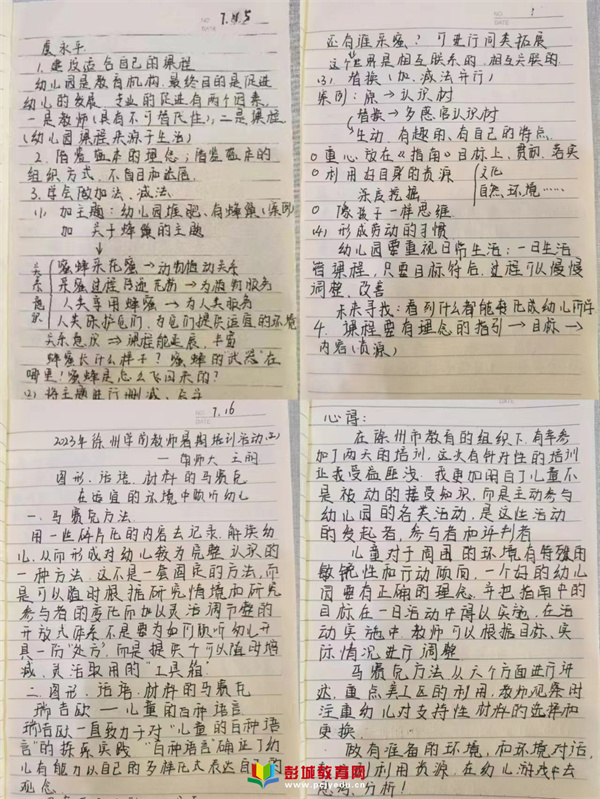 NO.
DATE 7.15
虞永平
1. 建设适合自己的课程
幼儿园是教育机构,最终目的是促进
幼儿的发展,专业的促进有两个因素,
一是教师(具有不可替代性),二是课程
(幼儿园课程来源于生活)
2. 借爱
的理念;借爱
的
组织方式,不自和
3. 学会做加法、减法
(1) 加主题:幼儿园
,有蜂巢(案例)
加 关于蜂巢的主题
↓
关系思
蜜蜂采花蜜→动物植动关系
采蜜过程传递花粉→为植物服务
人类享用蜂蜜→为人类服务
人类保护它们,为它们提供适宜的环境
关系思
→课程能延展、丰富
蜂蜜长什么样子?蜜蜂的武器在
哪里?蜜蜂是怎么飞回来的?
(2) 将主题进行删减、合并
NO.
DATE
还有谁采蜜?可进行同类拓展
这个世界是相互联系的,相互关联的
(3) 替换(加、减法并行)
案例:原→认识树
替换→多感官认识树
生动、有趣的、有自己的特点
○ 重心放在《指南》目标上、贯彻、落实
○ 利用好自身的资源
文化
自然、环境……
深度挖掘
○ 像孩子一样思维
(4) 形成劳动的习惯
幼儿园要重视日常生活:一日生活
皆课程,只要目标符合,过程可以慢慢
调整、改善
未来寻找:看到什么都能转化成幼儿所学
4. 课程要有理念的指引→目标→
内容(资源)
NO.
DATE 7.16
2023年徐州学前教师暑期培训活动(二)
—南师大 王
图形、话语、材料的马赛克
在适宜的环境中倾听幼儿
一. 马赛克方法
用一些碎片化的内容去记录、解读幼
儿,从而形成对幼儿较为完整认识的
一种方法,这不是一套固定的方法,而
是可以随时根据研究情境和研究
参与者的变化而加以灵活调节整的
开放式体系不是要为如何倾听幼儿开
具一防“处方”,而是提供个可以随时增
减、灵活取用的“工具箱”
二. 图形、话语、材料的马赛克
瑞吉欧——儿童的百种语言
瑞吉欧一直致力于对“儿童的百种语
言”的探索实践 “百种语言”确证了幼
儿有能力以自己的多样化式表达自己的
观念
心得:
在徐州市教育的组织下,有幸参
加了两天的培训,这次有针对性的培训
让我受益匪浅,我更加明白了儿童不
是被动的接受知识,而是主动参与
幼儿园的各类活动,是这些活动
的发起者,参与者和评判者
儿童对于周围的环境有特殊的
敏锐性和行动倾向,一个好的幼儿
园要有正确的理念,并把指南中的
目标在一日活动中得以实施,在活
动实施中,教师可以根据目标、实
际情况进行调整
马赛克方法从六个方面进行评
述,重点美工区的利用,教师观察时
注重幼儿对支持性材料的选择和
更换
做有准备的环境,和环境对话,
利用资源,在幼儿游戏中去
分析!
彭城教育网
www.pcjyedu.cn